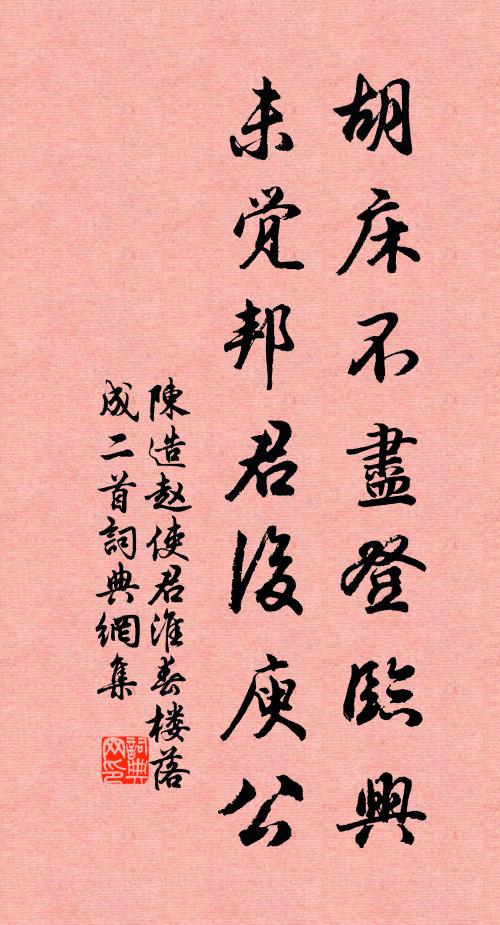 胡床不盡登臨興
未覚邦君後庾公
陳造赵使君淮春楼落
成二首詞典網集
詞典
网印